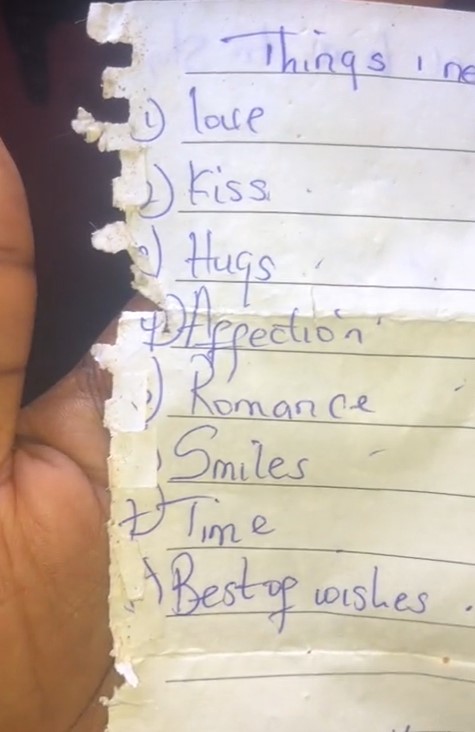 Things i ne
1) love
2) Kiss
3) Hugs
4) Affection
) Romance
) Smiles
7) Time
) Best of wishes.